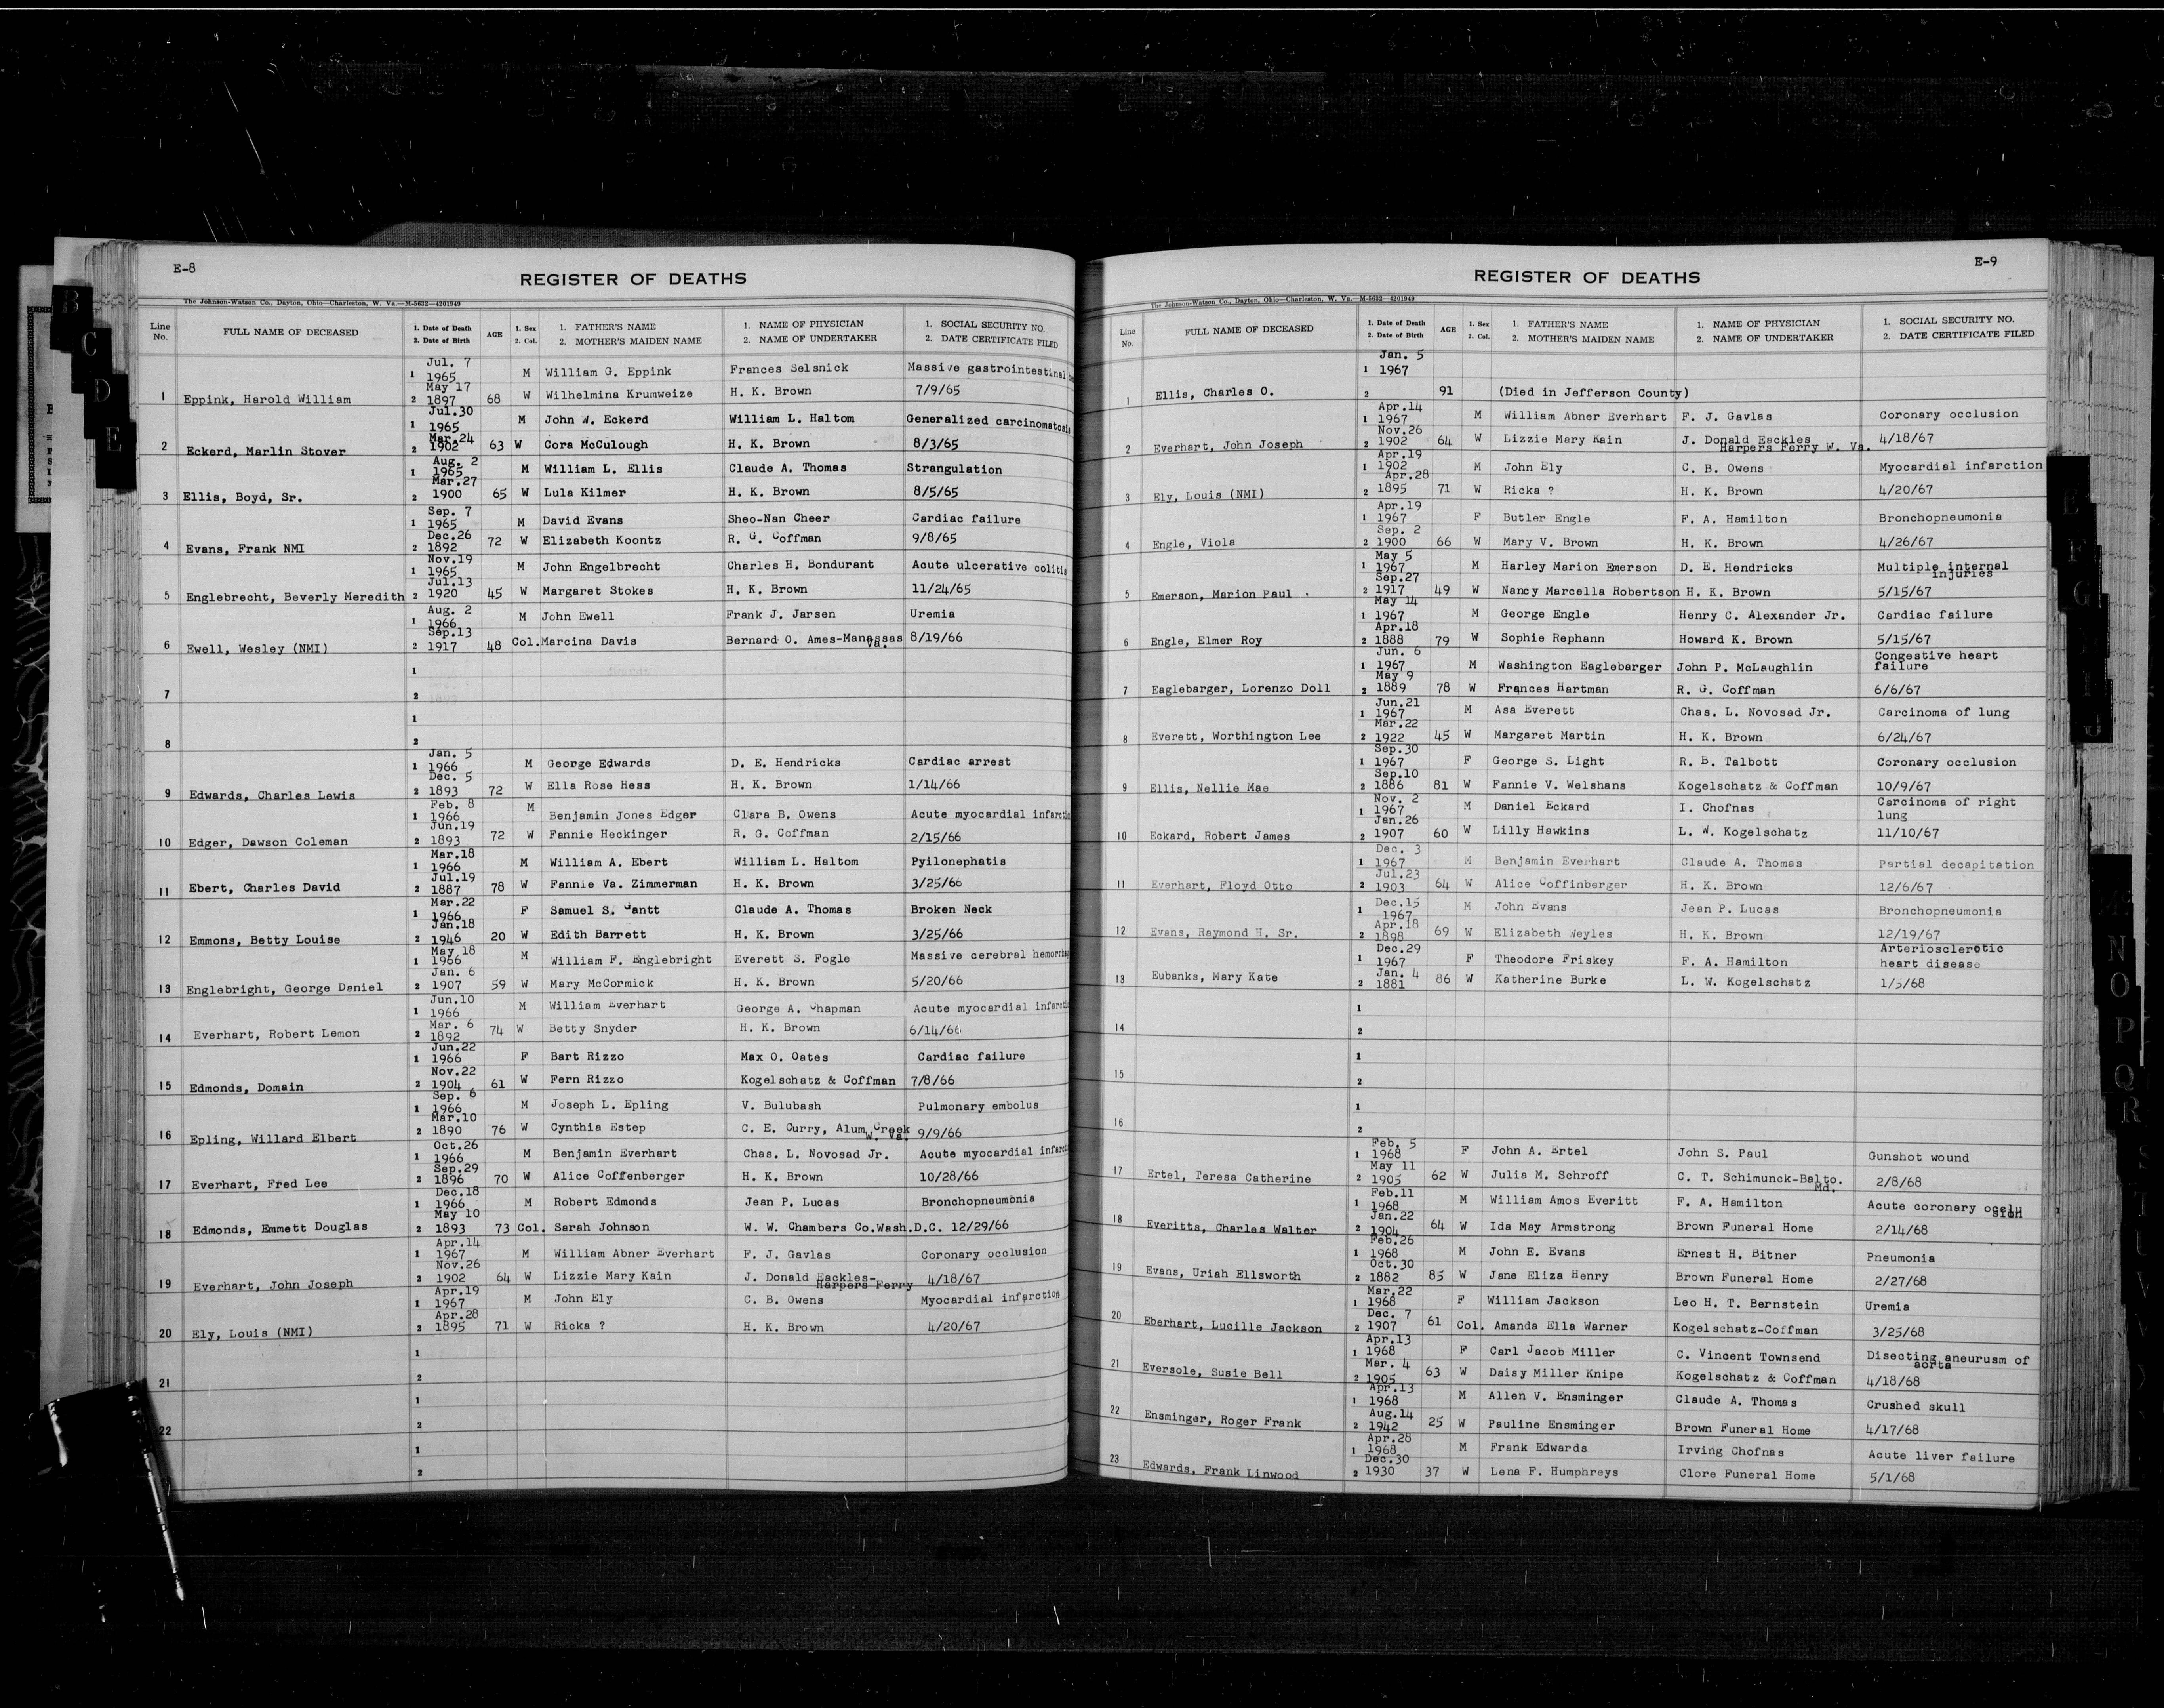 E-8
REGISTER OF DEATHS
The Johnson-Watson Co., Dayton, Ohio—Charleston, W. Va.—M-5632—4201949
Line No. FULL NAME OF DECEASED 1. Date of Death 2. Date of Birth AGE 1. Sex 2. Col. 1. FATHER'S NAME 2. MOTHER'S MAIDEN NAME 1. NAME OF PHYSICIAN 2. NAME OF UNDERTAKER 1. SOCIAL SECURITY NO. 2. DATE CERTIFICATE FILED
Jul. 7
1 1965 M William G. Eppink Frances Selsnick Massive gastrointestinal
May 17
1 Eppink, Harold William 2 1897 68 W Wilhelmina Krumweize H. K. Brown 7/9/65
Jul.30
1 1965 M John W. Eckerd William L. Haltom Generalized carcinomatosis
Mar.24
2 Eckerd, Marlin Stover 2 1902 63 W Cora McCulough H. K. Brown 8/3/65
Aug. 2
1 1965 M William L. Ellis Claude A. Thomas Strangulation
Mar.27
3 Ellis, Boyd, Sr. 2 1900 65 W Lula Kilmer H. K. Brown 8/5/65
Sep. 7
1 1965 M David Evans Sheo-Nan Cheer Cardiac failure
Dec.26
4 Evans, Frank NMI 2 1892 72 W Elizabeth Koontz R. G. Coffman 9/8/65
Nov.19
1 1965 M John Engelbrecht Charles H. Bondurant Acute ulcerative colitis
Jul.13
5 Englebrecht, Beverly Meredith 2 1920 45 W Margaret Stokes H. K. Brown 11/24/65
Aug. 2
1 1966 M John Ewell Frank J. Jarsen Uremia
Sep.13
6 Ewell, Wesley (NMI) 2 1917 48 Col. Marcina Davis Bernard O. Ames-Manassas Va. 8/19/66
1
7 2
1
8 2
Jan. 5
1 1966 M George Edwards D. E. Hendricks Cardiac arrest
Dec. 5
9 Edwards, Charles Lewis 2 1893 72 W Ella Rose Hess H. K. Brown 1/14/66
Feb. 8
1 1966 M Benjamin Jones Edger Clara B. Owens Acute myocardial
Jun.19
10 Edger, Dawson Coleman 2 1893 72 W Fannie Heckinger R. G. Coffman 2/15/66
Mar.18
1 1966 M William A. Ebert William L. Haltom Pyilonephatis
Jul.19
11 Ebert, Charles David 2 1887 78 W Fannie Va. Zimmerman H. K. Brown 3/25/66
Mar.22
1 1966 F Samuel S. Gantt Claude A. Thomas Broken Neck
Jan.18
12 Emmons, Betty Louise 2 1946 20 W Edith Barrett H. K. Brown 3/25/66
May 18
1 1966 M William F. Englebright Everett S. Fogle Massive cerebral
Jan. 6
13 Englebright, George Daniel 2 1907 59 W Mary McCormick H. K. Brown 5/20/66
Jun.10
1 1966 M William Everhart George A. Chapman Acute myocardial
Mar. 6
14 Everhart, Robert Lemon 2 1892 74 W Betty Snyder H. K. Brown 6/14/66
Jun.22
1 1966 F Bart Rizzo Max O. Oates Cardiac failure
Nov.22
15 Edmonds, Domain 2 1904 61 W Fern Rizzo Kogelschatz & Coffman 7/8/66
Sep. 6
1 1966 M Joseph L. Epling V. Bulubash Pulmonary embolus
Mar.10
16 Epling, Willard Elbert 2 1890 76 W Cynthia Estep C. E. Curry, Alum Creek W. Va. 9/9/66
Oct.26
1 1966 M Benjamin Everhart Chas. L. Novosad Jr. Acute myocardial
Sep.29
17 Everhart, Fred Lee 2 1896 70 W Alice Coffenberger H. K. Brown 10/28/66
Dec.18
1 1966 M Robert Edmonds Jean P. Lucas Bronchopneumonia
May 10
18 Edmonds, Emmett Douglas 2 1893 73 Col. Sarah Johnson W. W. Chambers Co.Wash.D.C. 12/29/66
Apr.14
1 1967 M William Abner Everhart F. J. Gavlas Coronary occlusion
Nov.26
19 Everhart, John Joseph 2 1902 64 W Lizzie Mary Kain J. Donald Eackles-Harpers Ferry 4/18/67
Apr.19
1 1967 M John Ely C. B. Owens Myocardial infarction
Apr.28
20 Ely, Louis (NMI) 2 1895 71 W Ricka ? H. K. Brown 4/20/67
1
21 2
1
22 2
1
2
E-9
REGISTER OF DEATHS
The Johnson-Watson Co., Dayton, Ohio—Charleston, W. Va.—M-5632—4201949
Line No. FULL NAME OF DECEASED 1. Date of Death 2. Date of Birth AGE 1. Sex 2. Col. 1. FATHER'S NAME 2. MOTHER'S MAIDEN NAME 1. NAME OF PHYSICIAN 2. NAME OF UNDERTAKER 1. SOCIAL SECURITY NO. 2. DATE CERTIFICATE FILED
Jan. 5
1 1967
1 Ellis, Charles O. 2 91 (Died in Jefferson County)
Apr.14
1 1967 M William Abner Everhart F. J. Gavlas Coronary occlusion
Nov.26
2 Everhart, John Joseph 2 1902 64 W Lizzie Mary Kain J. Donald Eackles Harpers Ferry W. Va. 4/18/67
Apr.19
1 1902 M John Ely C. B. Owens Myocardial infarction
Apr.28
3 Ely, Louis (NMI) 2 1895 71 W Ricka ? H. K. Brown 4/20/67
Apr.19
1 1967 F Butler Engle F. A. Hamilton Bronchopneumonia
Sep. 2
4 Engle, Viola 2 1900 66 W Mary V. Brown H. K. Brown 4/26/67
May 5
1 1967 M Harley Marion Emerson D. E. Hendricks Multiple internal injuries
Sep.27
5 Emerson, Marion Paul 2 1917 49 W Nancy Marcella Robertson H. K. Brown 5/15/67
May 14
1 1967 M George Engle Henry C. Alexander Jr. Cardiac failure
Apr.18
6 Engle, Elmer Roy 2 1888 79 W Sophie Rephann Howard K. Brown 5/15/67
Jun. 6
1 1967 M Washington Eaglebarger John P. McLaughlin Congestive heart failure
May 9
7 Eaglebarger, Lorenzo Doll 2 1889 78 W Frances Hartman R. G. Coffman 6/6/67
Jun.21
1 1967 M Asa Everett Chas. L. Novosad Jr. Carcinoma of lung
Mar.22
8 Everett, Worthington Lee 2 1922 45 W Margaret Martin H. K. Brown 6/24/67
Sep.30
1 1967 F George S. Light R. B. Talbott Coronary occlusion
Sep.10
9 Ellis, Nellie Mae 2 1886 81 W Fannie V. Welshans Kogelschatz & Coffman 10/9/67
Nov. 2
1 1967 M Daniel Eckard I. Chofnas Carcinoma of right lung
Jan.26
10 Eckard, Robert James 2 1907 60 W Lilly Hawkins L. W. Kogelschatz 11/10/67
Dec. 3
1 1967 M Benjamin Everhart Claude A. Thomas Partial decapitation
Jul.23
11 Everhart, Floyd Otto 2 1903 64 W Alice Coffinberger H. K. Brown 12/6/67
Dec.15
1 1967 M John Evans Jean P. Lucas Bronchopneumonia
Apr.18
12 Evans, Raymond H. Sr. 2 1898 69 W Elizabeth Weyles H. K. Brown 12/19/67
Dec.29
1 1967 F Theodore Friskey F. A. Hamilton Arteriosclerotic heart disease
Jan. 4
13 Eubanks, Mary Kate 2 1881 86 W Katherine Burke L. W. Kogelschatz 1/5/68
1
14 2
1
15 2
1
16 2
Feb. 5
1 1968 F John A. Ertel John S. Paul Gunshot wound
May 11
17 Ertel, Teresa Catherine 2 1905 62 W Julia M. Schroff C. T. Schimunck-Balto. Md. 2/8/68
Feb.11
1 1968 M William Amos Everitt F. A. Hamilton Acute coronary occlusion
Jan.22
18 Everitts, Charles Walter 2 1904 64 W Ida May Armstrong Brown Funeral Home 2/14/68
Feb.26
1 1968 M John E. Evans Ernest H. Bitner Pneumonia
Oct.30
19 Evans, Uriah Ellsworth 2 1882 85 W Jane Eliza Henry Brown Funeral Home 2/27/68
Mar.22
1 1968 F William Jackson Leo H. T. Bernstein Uremia
Dec. 7
20 Eberhart, Lucille Jackson 2 1907 61 Col. Amanda Ella Warner Kogelschatz-Coffman 3/25/68
Apr.13
1 1968 F Carl Jacob Miller C. Vincent Townsend Disecting aneurusm of aorta
Mar. 4
21 Eversole, Susie Bell 2 1905 63 W Daisy Miller Knipe Kogelschatz & Coffman 4/18/68
Apr.13
1 1968 M Allen V. Ensminger Claude A. Thomas Crushed skull
Aug.14
22 Ensminger, Roger Frank 2 1942 25 W Pauline Ensminger Brown Funeral Home 4/17/68
Apr.28
1 1968 M Frank Edwards Irving Chofnas Acute liver failure
Dec.30
23 Edwards, Frank Linwood 2 1930 37 W Lena F. Humphreys Clore Funeral Home 5/1/68
B
C
D
E
E
F
G
N
O
P
Q
R